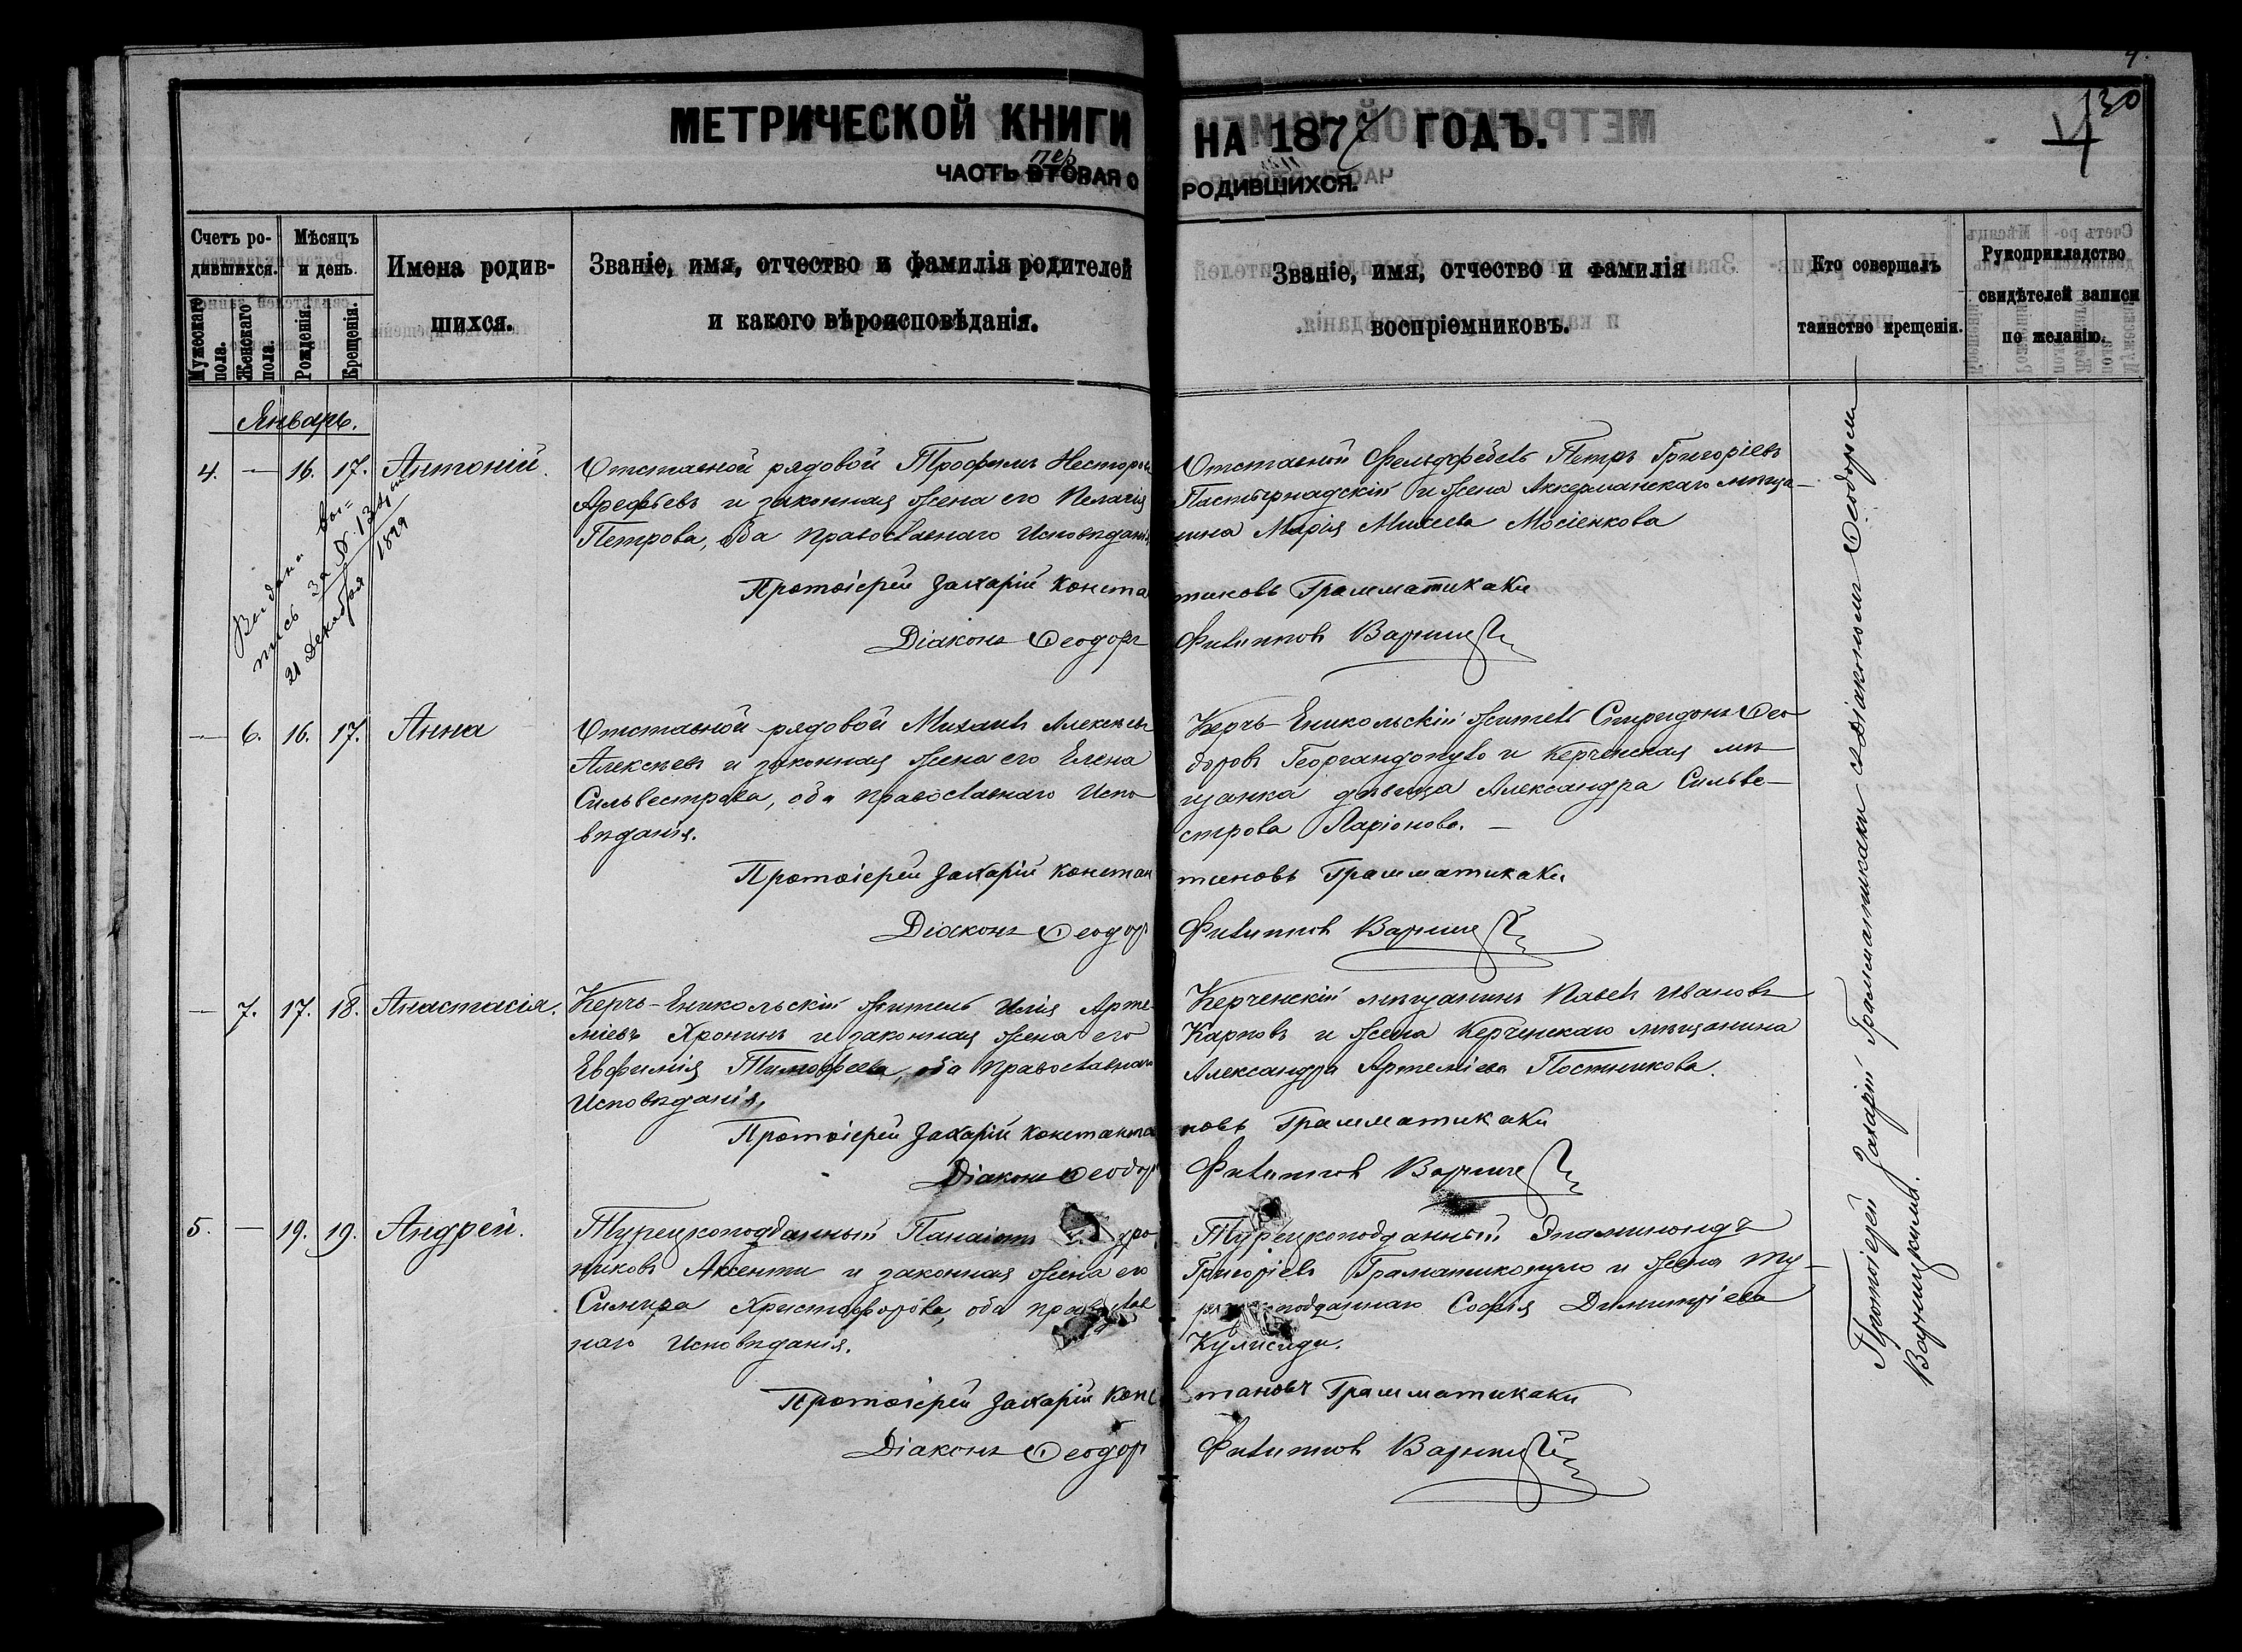 9.
130
МЕТРИЧЕСКОЙ КНИГИ НА 1877 ГОДЪ.
пер
ЧАСТЬ ВТОРАЯ О РОДИВШИХСЯ.
Счетъ родившихся.
Мужескаго пола.
Женскаго пола.
Мѣсяцъ и день.
Рожденія.
Крещенія.
Имена родившихся.
Званіе, имя, отчество и фамилія родителей
и какого вѣроисповѣданія.
Званіе, имя, отчество и фамилія
воспріемниковъ.
Кто совершалъ
таинство крещенія.
Рукоприкладство
свидѣтелей записи
по желанію.
Январь.
4. — 16. 17. Антоній.
Отставной рядовой Трофимъ Несторов
Арефьевъ и законная жена его Пелагія
Петрова, оба православнаго исповѣданія
Отставной Фельдфебель Петръ Григоріевъ
и жена Аккерманскаго мѣща-
нина Марія Михеева Мосіенкова
Протоіерей Захарій Константиновъ Грамматикаки
Діаконъ Ѳеодоръ Филипповъ Варницкій
Выдана вы=
пись за №
21 Декабря
— 6. 16. 17. Анна
Отставной рядовой Михаилъ Алексѣевъ
Алексѣевъ и законная жена его Елена
Сильвестрова, оба православнаго испо
вѣданія.
Керчь-Еникольскій житель Спиридонъ Ѳео
доровъ Георгандопуло и Керченская мѣ
щанка дѣвица Александра Сильве-
строва Ларіонова. —
Протоіерей Захарій Константиновъ Грамматикаки
Діаконъ Ѳеодоръ Филипповъ Варницкій
— 7. 17. 18. Анастасія.
Керчь-Еникольскій житель Илія Арте-
міевъ Хронинъ и законная жена его
Евфимія Тимофеева, оба православнаго
исповѣданія.
Керченскій мѣщанинъ Павелъ Ивановъ
Карповъ и жена Керченскаго мѣщанина
Александра Артеміева Постникова.
Протоіерей Захарій Константиновъ Грамматикаки
Діаконъ Ѳеодоръ Филипповъ Варницкій
5. — 19. 19. Андрей.
Турецкоподданный Панаіотъ
никовъ Аксенти и законная жена его
Симира Христофорова, оба православ
наго исповѣданія.
Турецкоподданный Эпаминондъ
Григоріевъ Граматикопуло и жена Ту-
рецкоподданнаго Софія Димитріева
Кулисиди.
Протоіерей Захарій Константиновъ Грамматикаки
Діаконъ Ѳеодоръ Филипповъ Варницкій
Протоіерей Захарій Грамматикаки съ Діакономъ Ѳеодоромъ
Варницкимъ. —